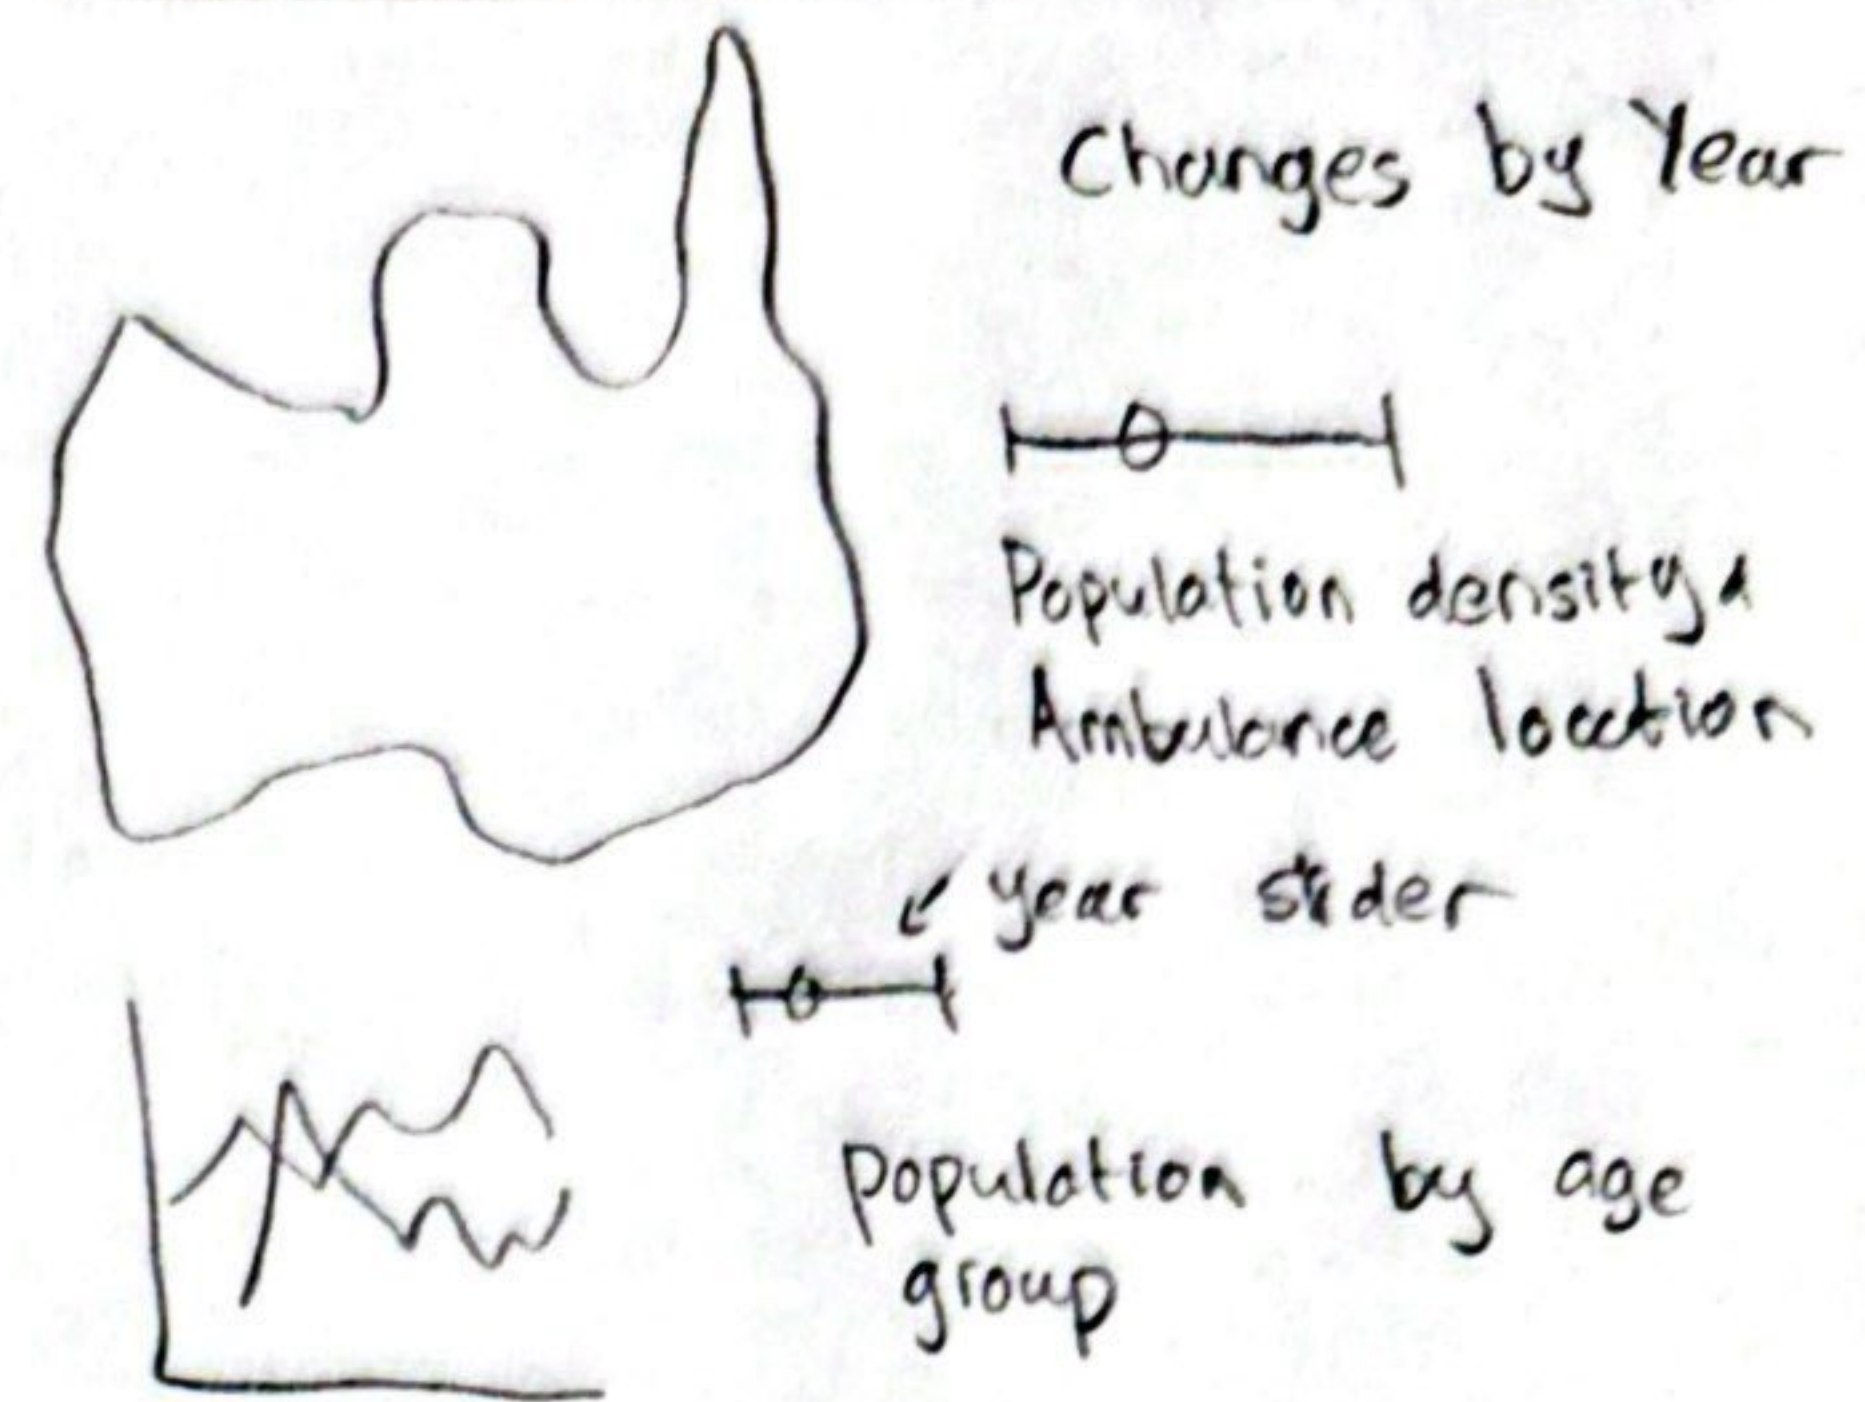 Changes by Year
Population density &
Ambulance location
year slider
population by age
group